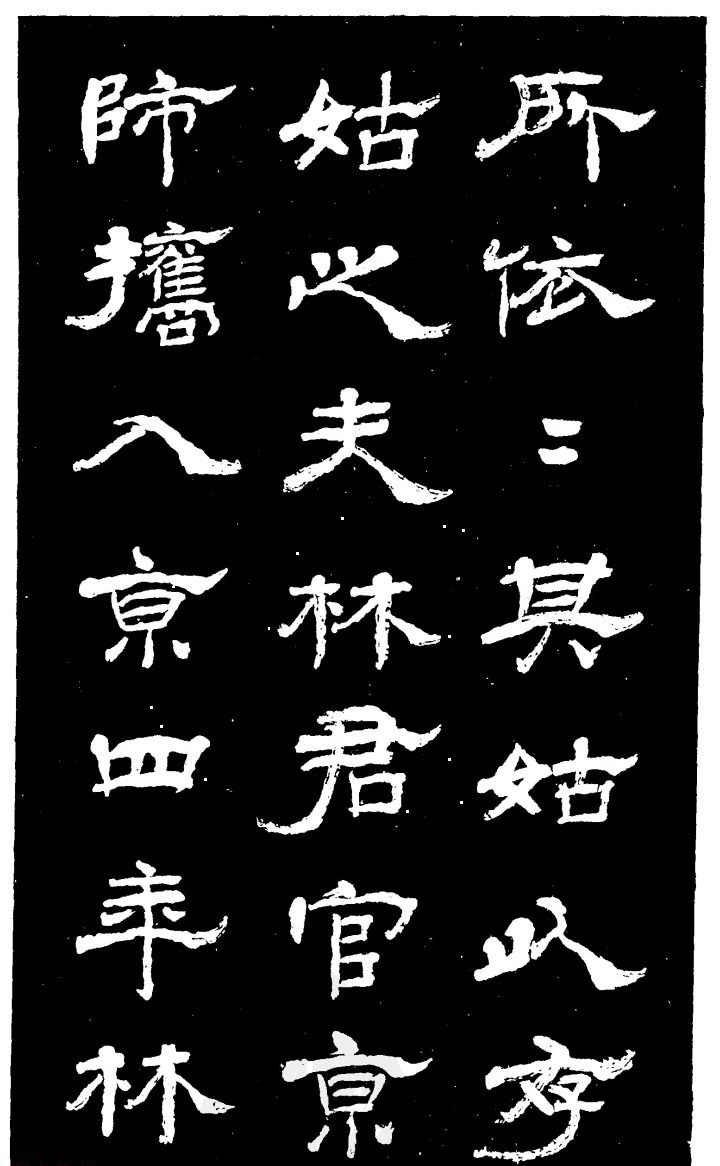 所依〻其姑以存
姑之夫林君官京
師攜入京四年林